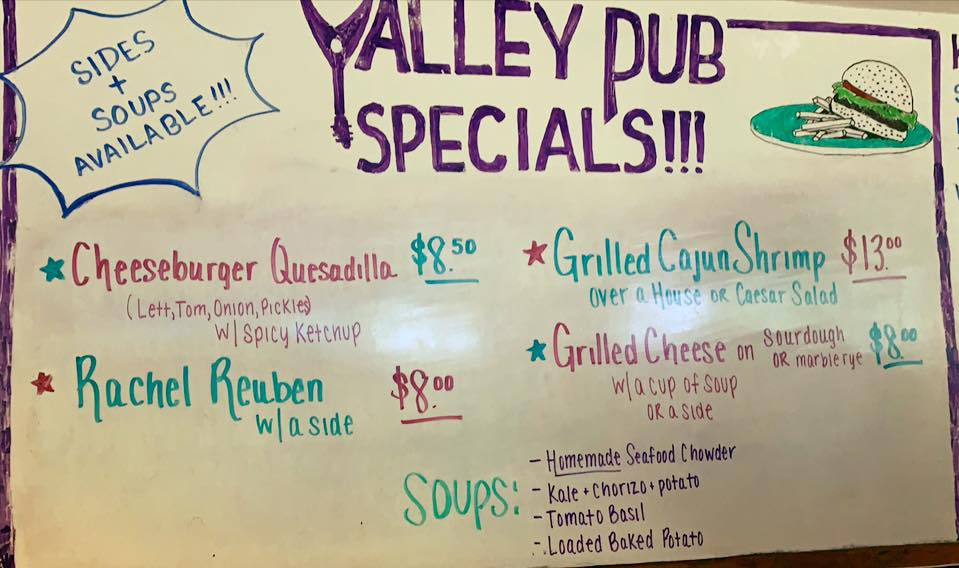 SIDES
+
SOUPS
AVAILABLE!!!
VALLEY PUB
SPECIALS!!!
Cheeseburger Quesadilla $8.50
(Lett, Tom, Onion, Pickles)
w/ Spicy Ketchup
Rachel Reuben $8.00
w/ a side
Grilled Cajun Shrimp $13.00
over a House OR Caesar Salad
Grilled Cheese on Sourdough OR marble rye $8.00
w/ a cup of soup
OR a side
SOUPS:
- Homemade Seafood Chowder
- Kale + Chorizo + potato
- Tomato Basil
- Loaded Baked Potato